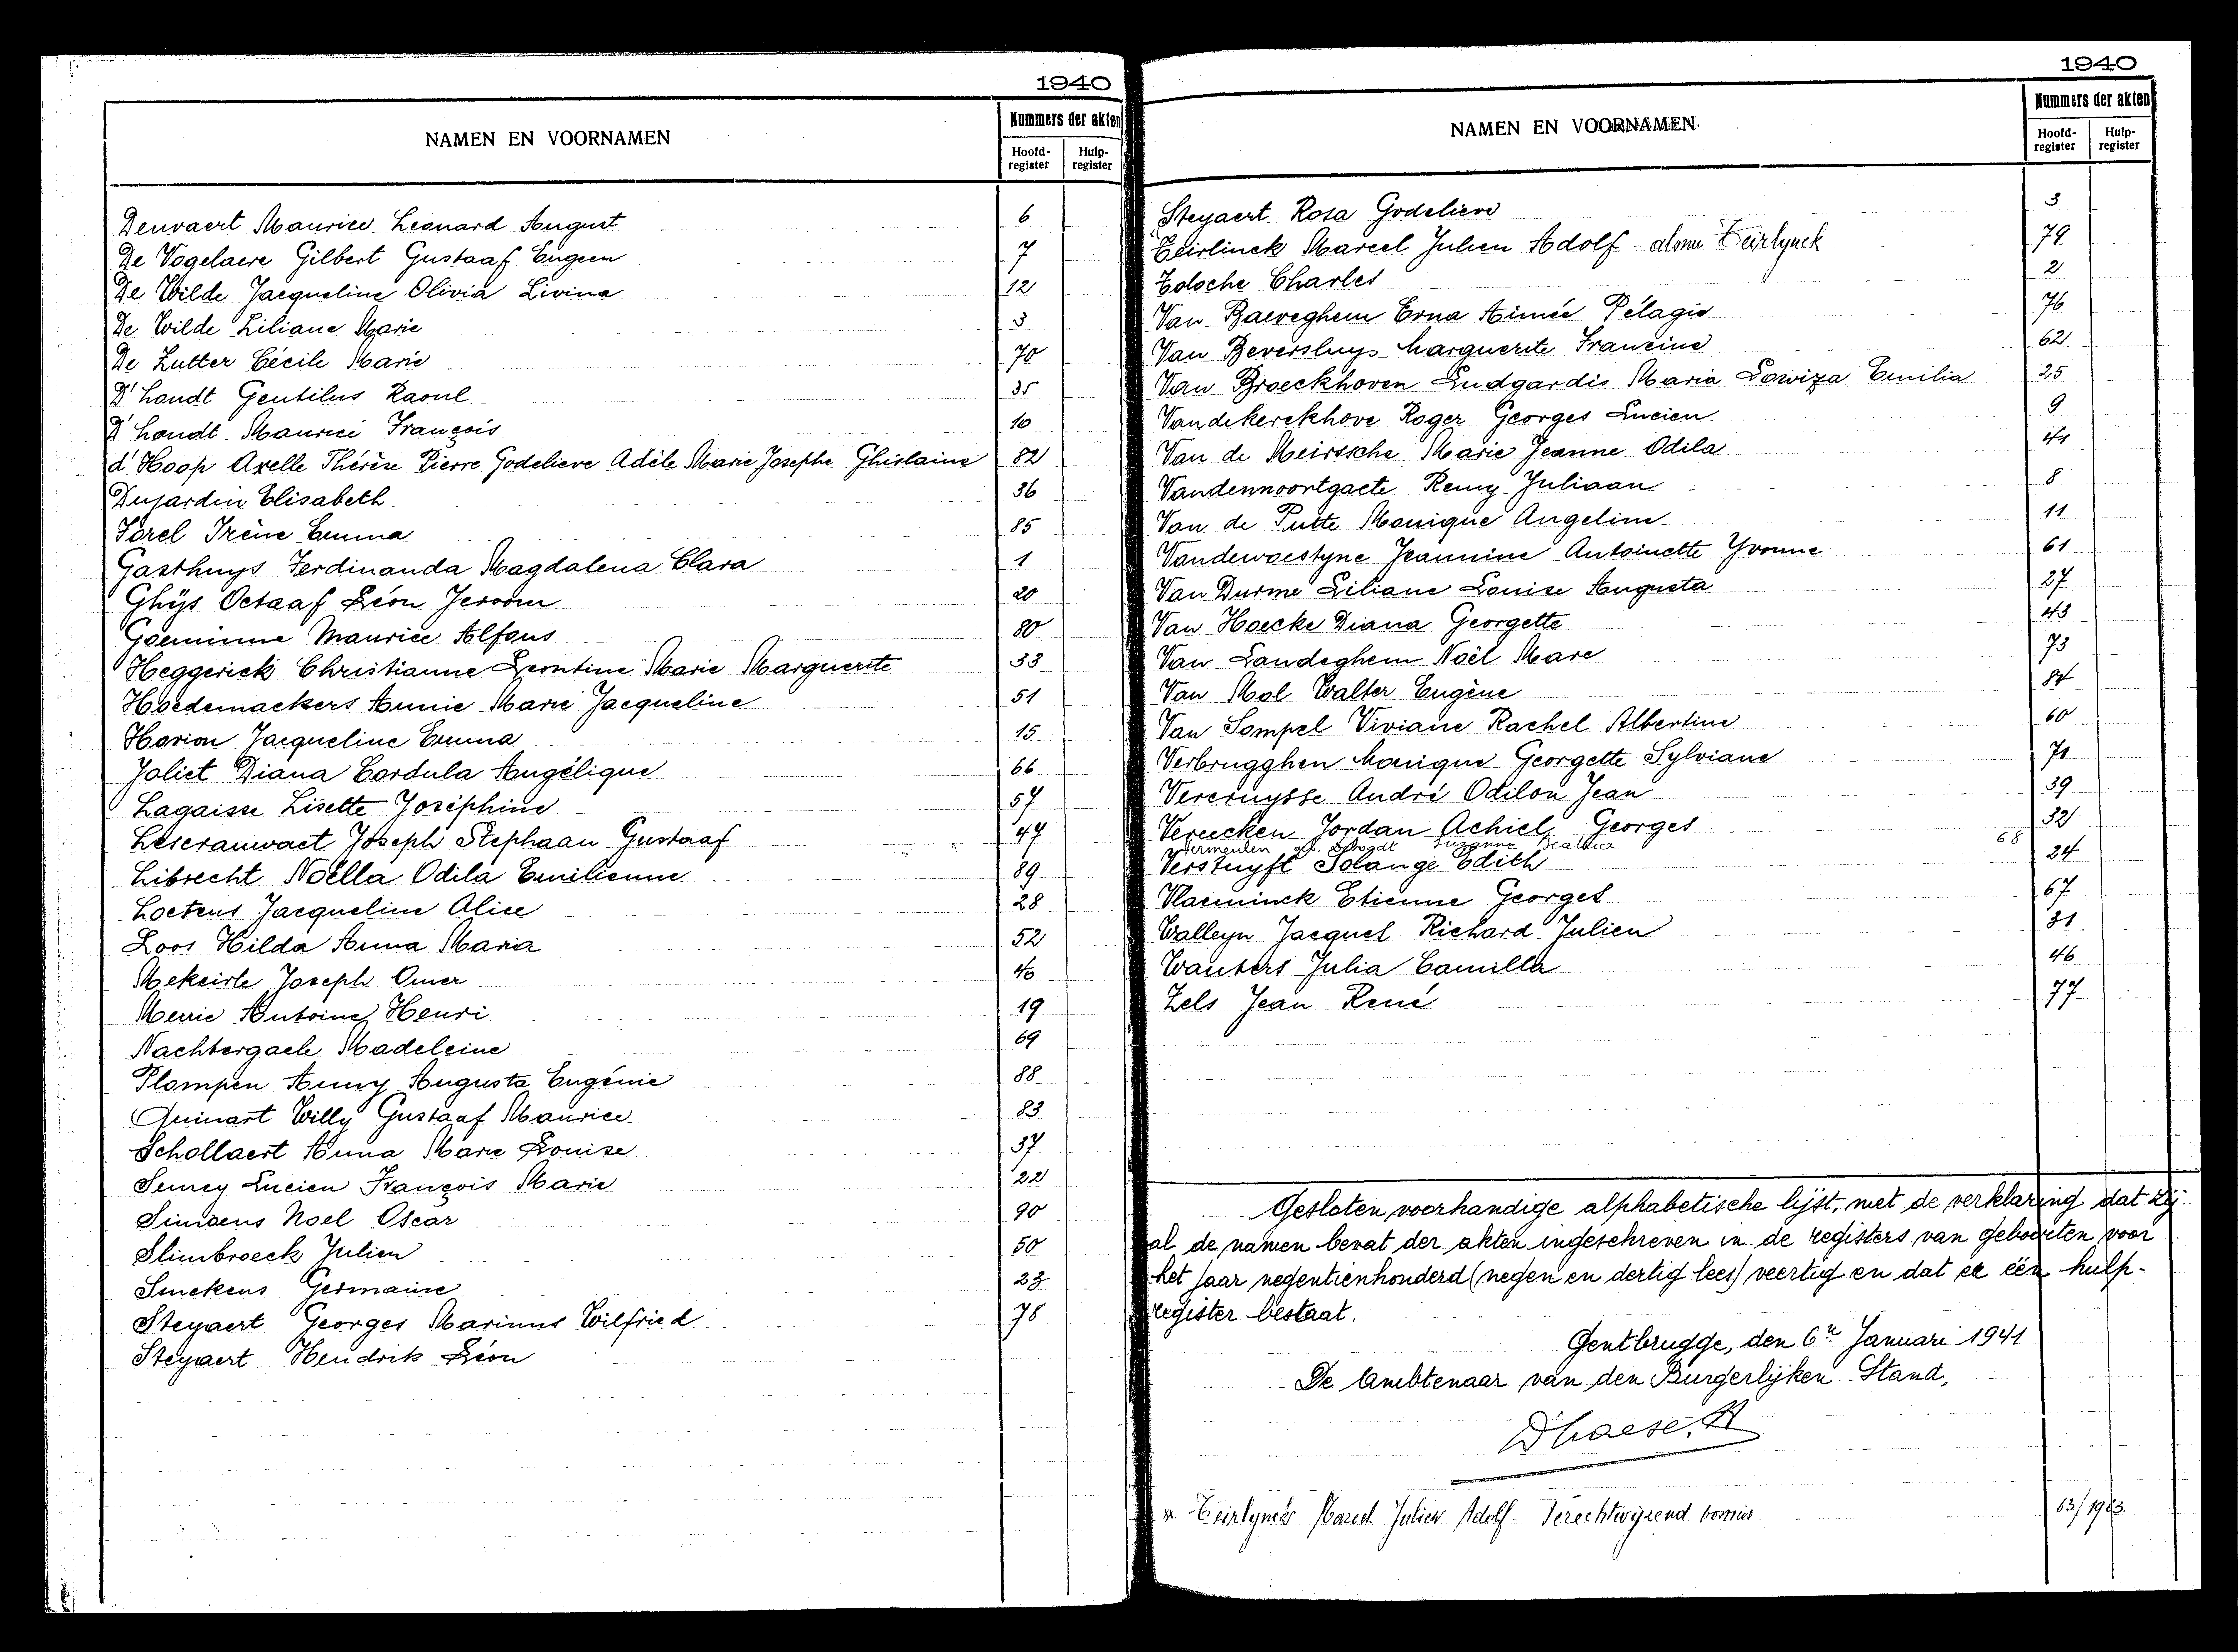 1940
NAMEN EN VOORNAMEN
Nummers der akten
Hoofd-register Hulp-register
Denvaert Maurice Leonard August 6
De Vogelaere Gilbert Gustaaf Eugeen 7
De Wilde Jacqueline Olivia Livina 12
De Wilde Liliane Marie 3
De Zutter Cécile Marie 70
D'hondt Gentilus Raoul 35
D'hondt Maurice François 10
d'Hoop Axelle Thérèse Pierre Godelieve Adèle Marie Josephe Ghislaine 82
Dujardin Elisabeth 36
Forel Irène Emma 85
Gasthuys Ferdinanda Magdalena Clara 1
Ghijs Octaaf Léon Jeroom 20
Goeminne Maurice Alfons 80
Heggerick Christianne Leontine Marie Marguerite 33
Hoedemaekers Annie Marie Jacqueline 51
Horion Jacqueline Emma 15
Joliet Diana Cordula Angélique 66
Lagaisse Lisette Joséphine 57
Leseranwaet Joseph Stephaan Gustaaf 47
Librecht Noëlla Odila Emilienne 89
Loetens Jacqueline Alice 28
Loos Hilda Anna Maria 52
Mekeirle Joseph Omer 40
Merrie Antoine Henri 19
Nachtergaele Madeleine 69
Plompen Anny Augusta Eugénie 88
Quinart Willy Gustaaf Maurice 83
Schollaert Anna Marie Louise 37
Semey Lucien François Marie 22
Simoens Noel Oscar 90
Slimbroeck Julien 50
Smekens Germaine 23
Steyaert Georges Marinus Wilfried 78
Steyaert Hendrik Léon
1940
NAMEN EN VOORNAMEN
Nummers der akten
Hoofd-register Hulp-register
Steyaert Rosa Godelieve 3
Teirlinck Marcel Julien Adolf - alonu Teirlynck 79
Tolsche Charles 2
Van Baeveghem Erna Aimée Pélagie 76
Van Beversluys Marguerite Francine 62
Van Broeckhoven Ludgardis Maria Lowiza Emilia 25
Vandekerckhove Roger Georges Lucien 9
Van de Meirssche Marie Jeanne Odila 41
Vandennoortgaete Remy Juliaan 8
Van de Putte Monique Angeline 11
Vandewoestyne Jeannine Antoinette Yvonne 61
Van Durme Liliane Louise Augusta 27
Van Hoecke Diana Georgette 43
Van Landeghem Noël Marc 73
Van Mol Walter Eugène 84
Van Sompel Viviane Rachel Albertine 60
Verbrugghen Monique Georgette Sylviane 71
Vercruysse André Odilon Jean 39
Vereecken Jordan Achiel Georges 32
Vermeulen Suzanne Beatrice 68
Verstuyft Solange Edith 24
Vlaeminck Etienne Georges 67
Walleyn Jacques Richard Julien 31
Wauters Julia Camilla 46
Zels Jean René 77
Gesloten, voorhandige alphabetische lijst, met de verklaring dat zij
al de namen bevat der akten ingeschreven in de registers van geboorten voor
het jaar negentienhonderd (negen en dertig lees) veertig en dat er één hulp-
register bestaat.
Gentbrugge, den 6n Januari 1941
De Ambtenaar van den Burgerlijken Stand,
D'haese
Teirlynck Marcel Julien Adolf - Terechtwijzend vonnis 63/1963